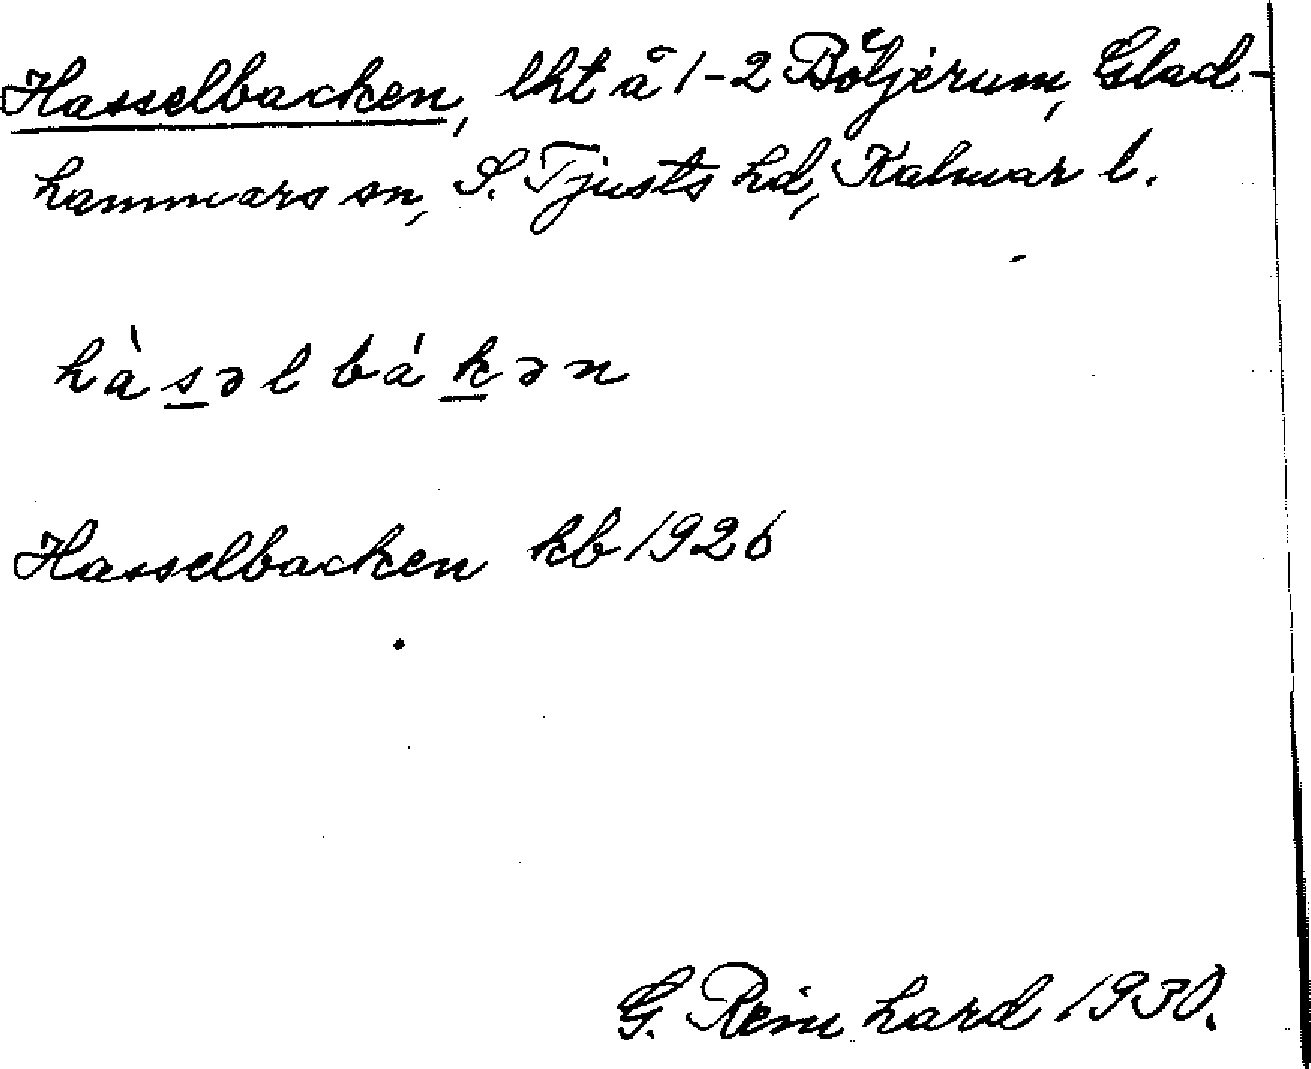 Hasselbacken, lht å 1-2 Böljerum, Glad-
hammars sn, S. Tjusts hd, Kalmar l.
hàs̲əlbák̲ən
Hasselbacken kb 1926
G. Reinhard 1930.